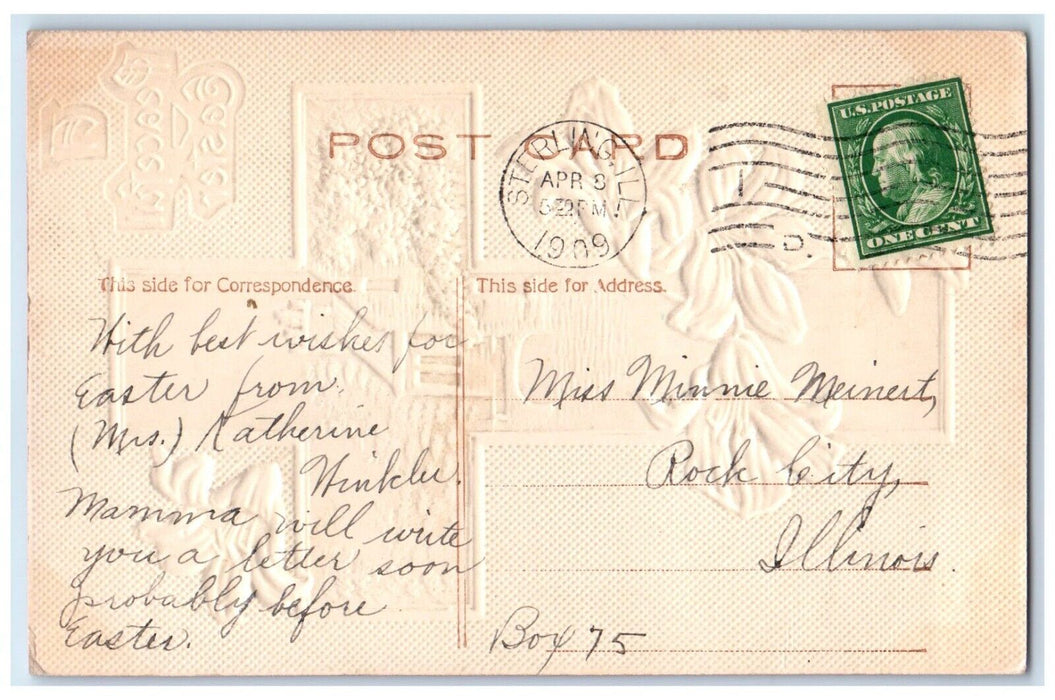 POST CARD
STERLING, ILL.
APR 8
1909
U.S. POSTAGE
ONE CENT
This side for Correspondence.
This side for Address.
With best wishes for
Easter from
(Mrs.) Katherine
Winkler.
Mamma will write
you a letter soon
probably before
Easter.
Miss Minnie Meinert,
Rock City,
Illinois.
Box 75